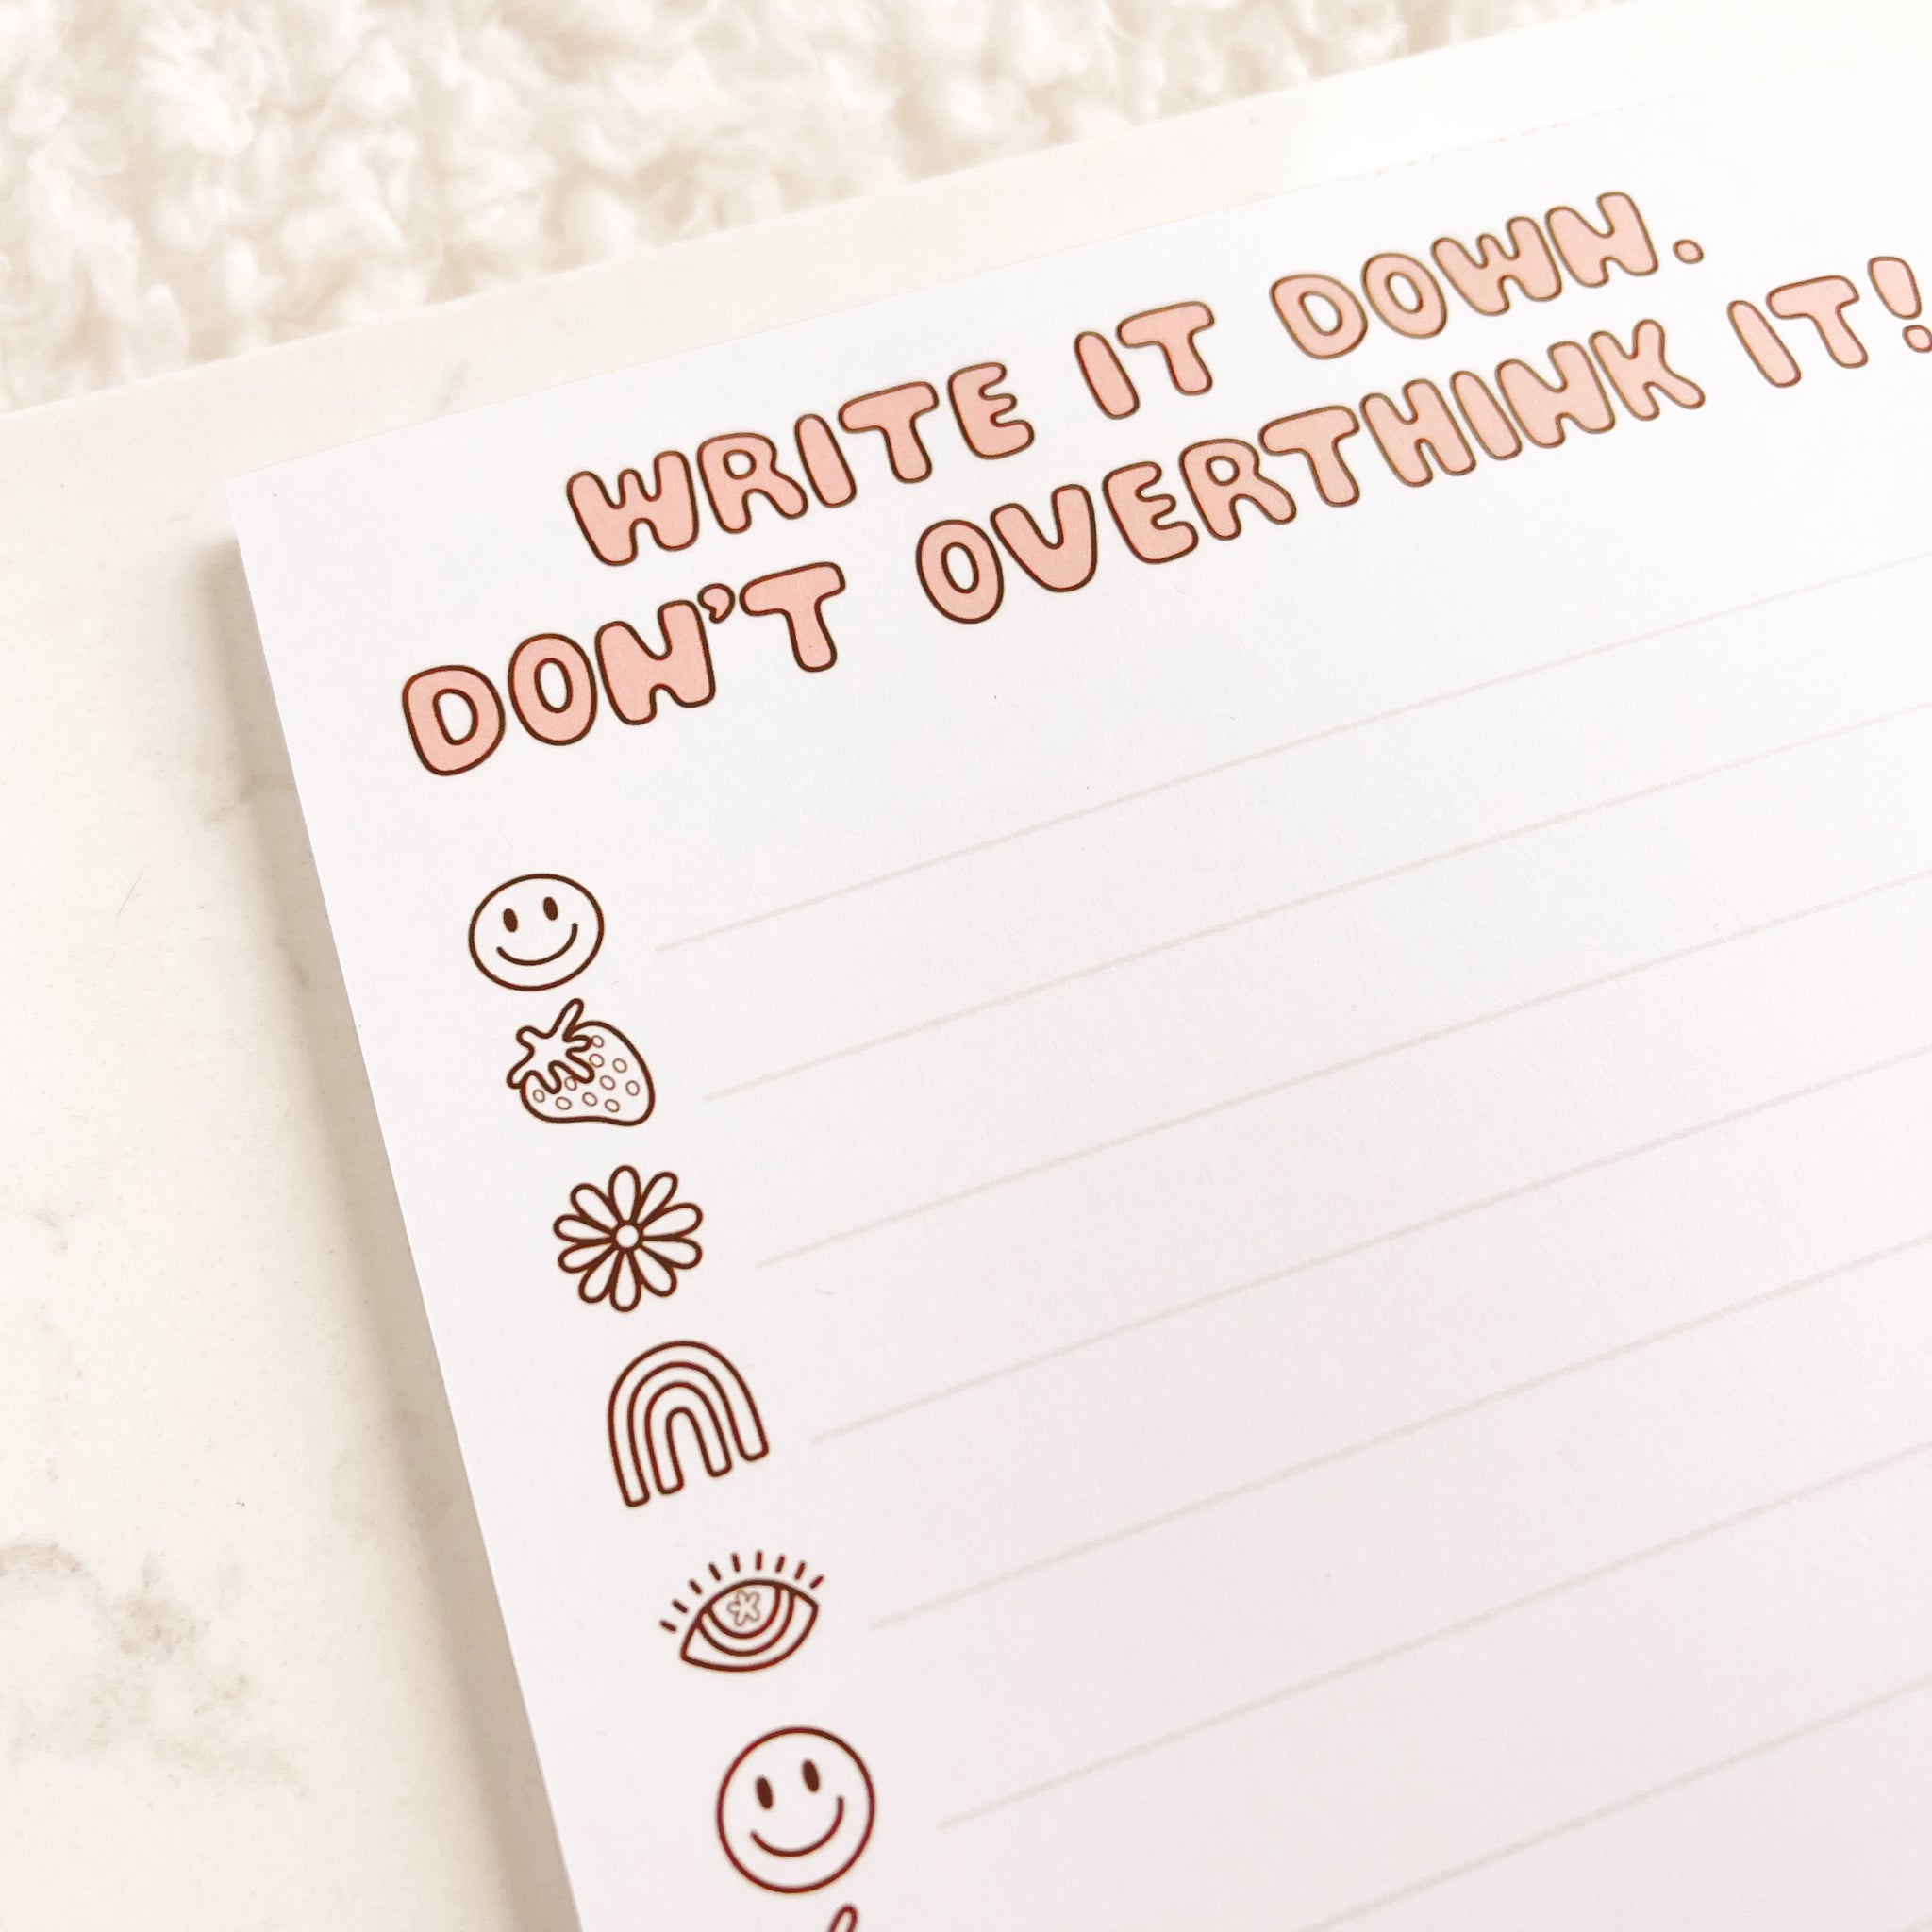 WRITE IT DOWN.
DON'T OVERTHINK IT!